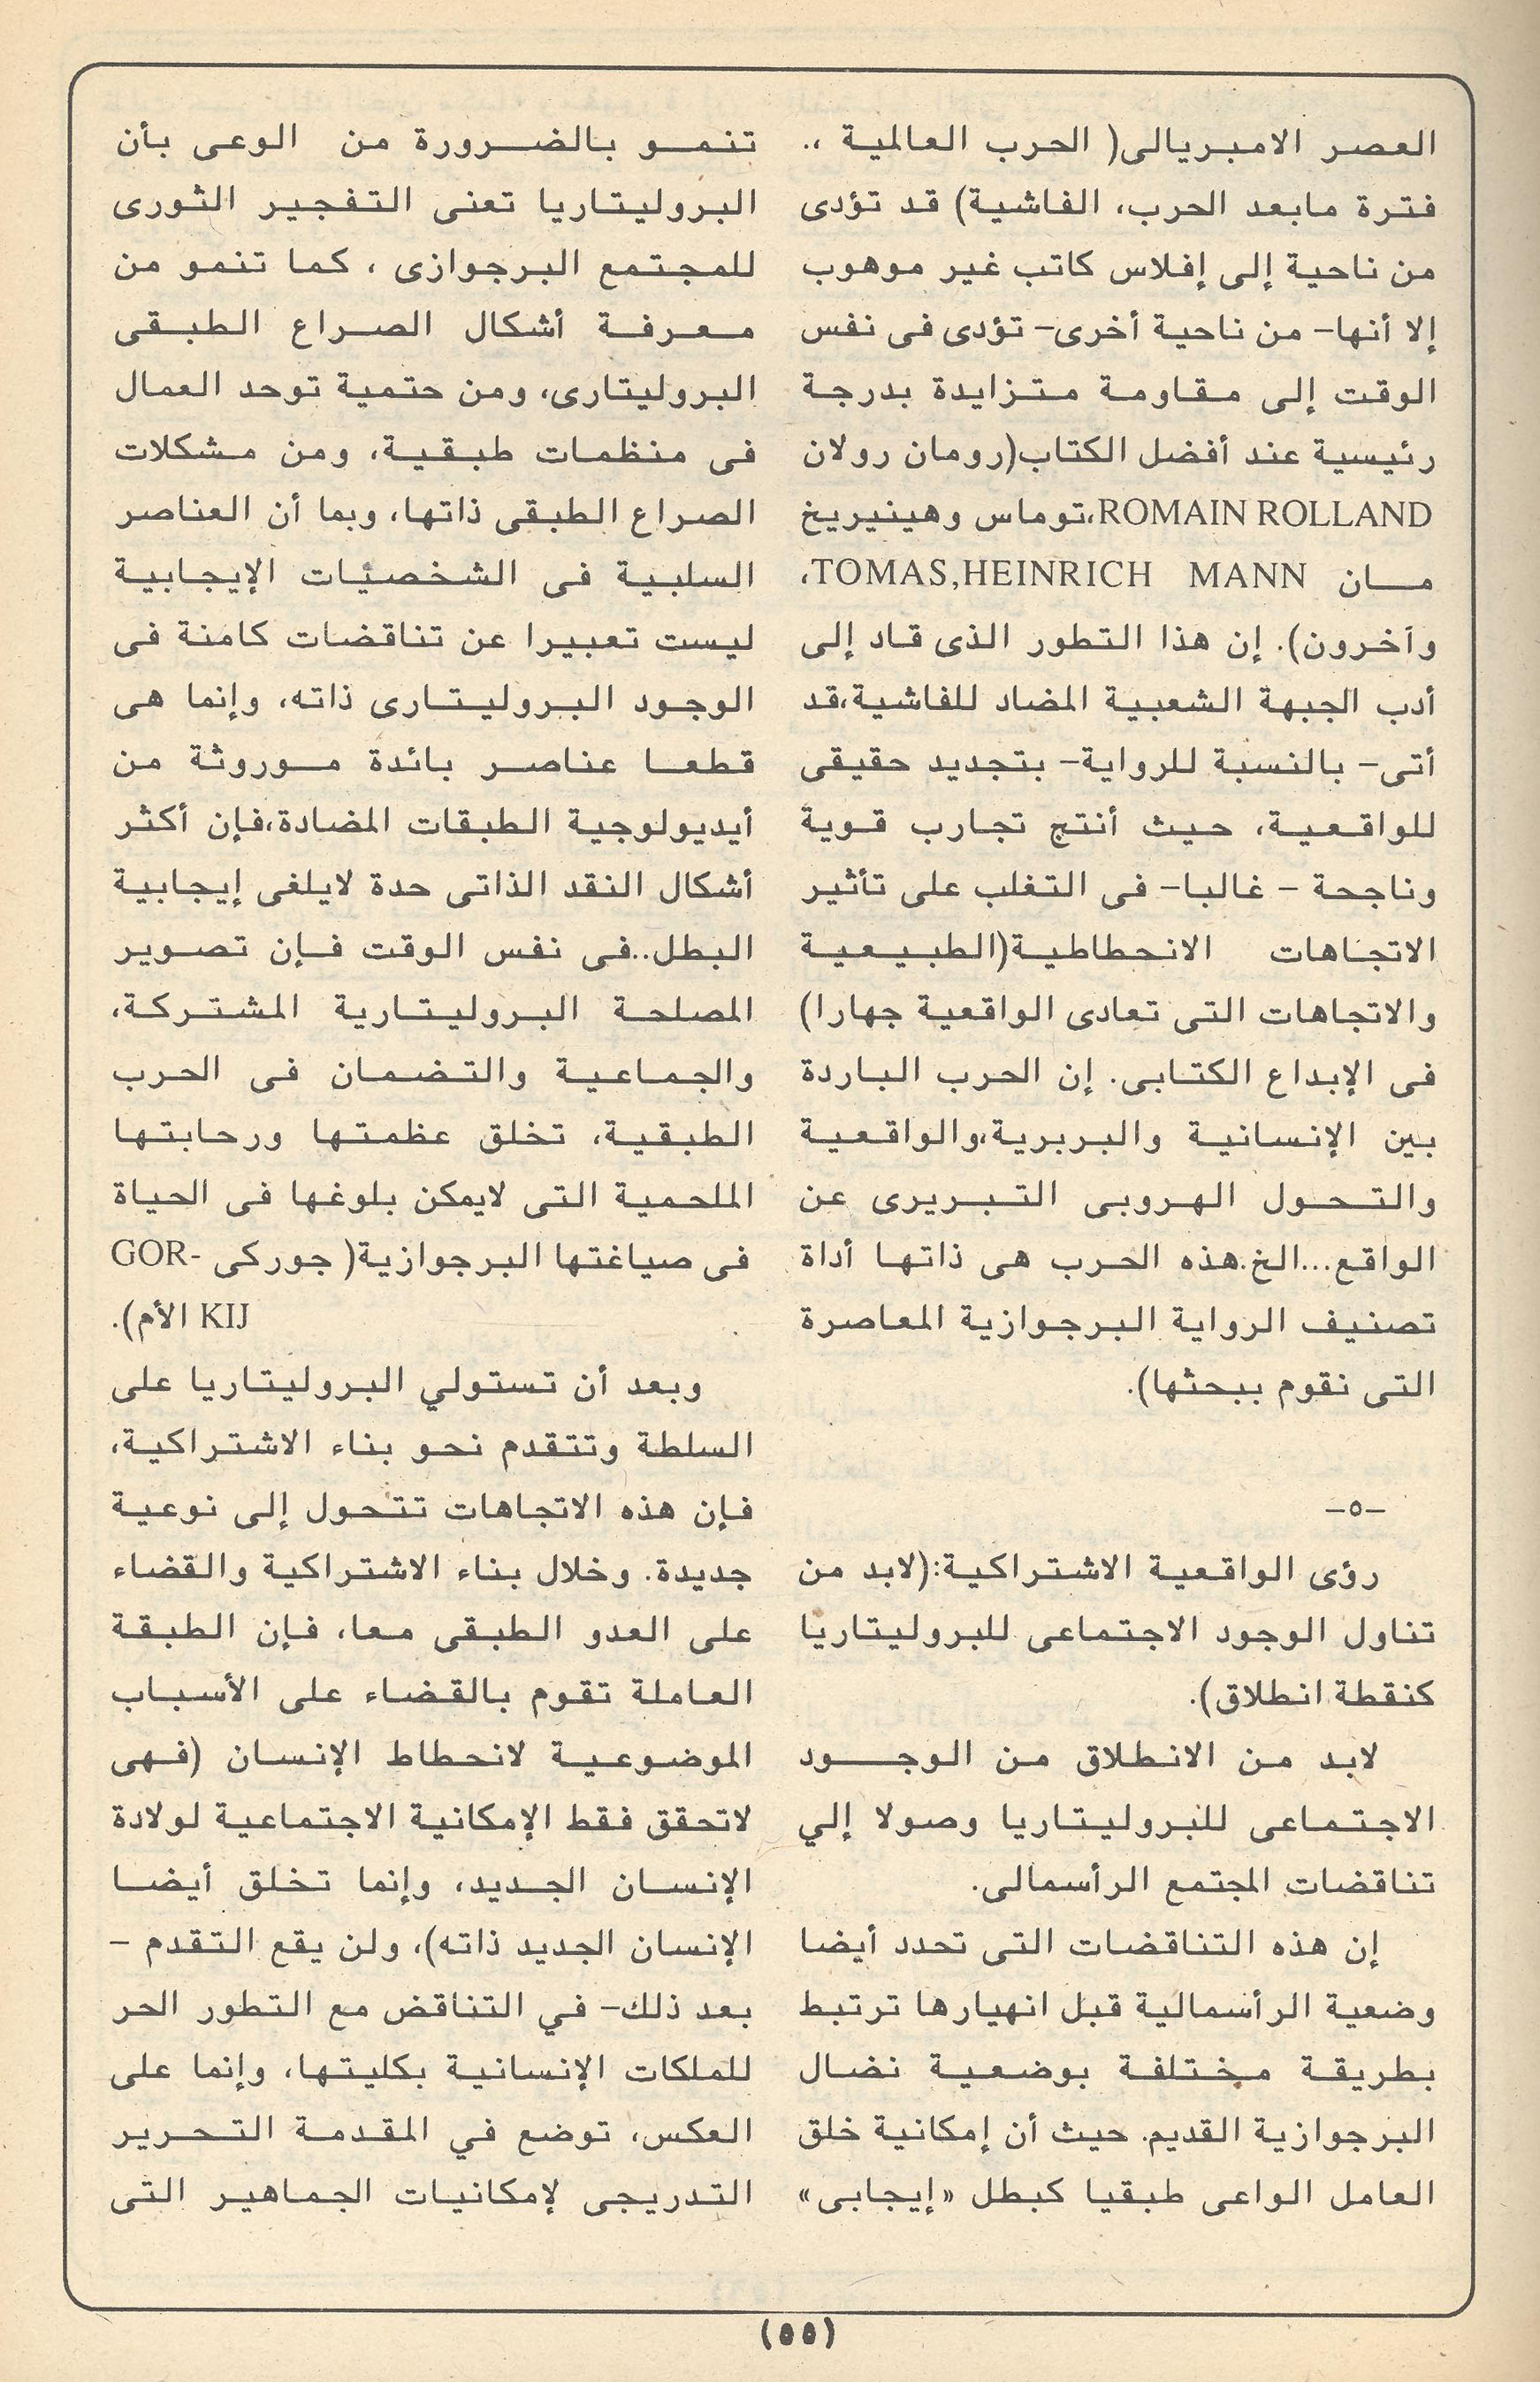 العصر الامبريالى( الحرب العالمية ،.
فترة مابعد الحرب، الفاشية) قد تؤدى
من ناحية إلى إفلاس كاتب غير موهوب
إلا أنها- من ناحية أخرى- تؤدى فى نفس
الوقت إلى مقاومة متزايدة بدرجة
رئيسية عند أفضل الكتاب(رومان رولان
ROMAIN ROLLAND،توماس وهينيريخ
مان TOMAS,HEINRICH MANN،
وآخرون). إن هذا التطور الذى قاد إلى
أدب الجبهة الشعبية المضاد للفاشية،قد
أتى- بالنسبة للرواية- بتجديد حقيقى
للواقعية، حيث أنتج تجارب قوية
وناجحة - غالبا- فى التغلب على تأثير
الاتجاهات الانحطاطية(الطبيعية
والاتجاهات التى تعادى الواقعية جهارا)
فى الإبداع الكتابى. إن الحرب الباردة
بين الإنسانية والبربرية،والواقعية
والتحول الهروبى التبريرى عن
الواقع...الخ.هذه الحرب هى ذاتها أداة
تصنيف الرواية البرجوازية المعاصرة
التى نقوم ببحثها).
-٥-
رؤى الواقعية الاشتراكية:(لابد من
تناول الوجود الاجتماعى للبروليتاريا
كنقطة انطلاق).
لابد من الانطلاق من الوجود
الاجتماعى للبروليتاريا وصولا إلي
تناقضات المجتمع الرأسمالى.
إن هذه التناقضات التى تحدد أيضا
وضعية الرأسمالية قبل انهيارها ترتبط
بطريقة مختلفة بوضعية نضال
البرجوازية القديم. حيث أن إمكانية خلق
العامل الواعى طبقيا كبطل «إيجابى»
تنمو بالضرورة من الوعى بأن
البروليتاريا تعنى التفجير الثورى
للمجتمع البرجوازى ، كما تنمو من
معرفة أشكال الصراع الطبقى
البروليتارى، ومن حتمية توحد العمال
فى منظمات طبقية، ومن مشكلات
الصراع الطبقى ذاتها، وبما أن العناصر
السلبية فى الشخصيات الإيجابية
ليست تعبيرا عن تناقضات كامنة فى
الوجود البروليتارى ذاته، وإنما هى
قطعا عناصر بائدة موروثة من
أيديولوجية الطبقات المضادة،فإن أكثر
أشكال النقد الذاتى حدة لايلغى إيجابية
البطل..فى نفس الوقت فإن تصوير
المصلحة البروليتارية المشتركة،
والجماعية والتضمان فى الحرب
الطبقية، تخلق عظمتها ورحابتها
الملحمية التى لايمكن بلوغها فى الحياة
فى صياغتها البرجوازية( جوركى GOR-
KIJ الأم).
وبعد أن تستولي البروليتاريا على
السلطة وتتقدم نحو بناء الاشتراكية،
فإن هذه الاتجاهات تتحول إلى نوعية
جديدة. وخلال بناء الاشتراكية والقضاء
على العدو الطبقى معا، فإن الطبقة
العاملة تقوم بالقضاء على الأسباب
الموضوعية لانحطاط الإنسان (فهى
لاتحقق فقط الإمكانية الاجتماعية لولادة
الإنسان الجديد، وإنما تخلق أيضا
الإنسان الجديد ذاته)، ولن يقع التقدم -
بعد ذلك- في التناقض مع التطور الحر
للملكات الإنسانية بكليتها، وإنما على
العكس، توضع في المقدمة التحرير
التدريجى لإمكانيات الجماهير التى
(٥٥)